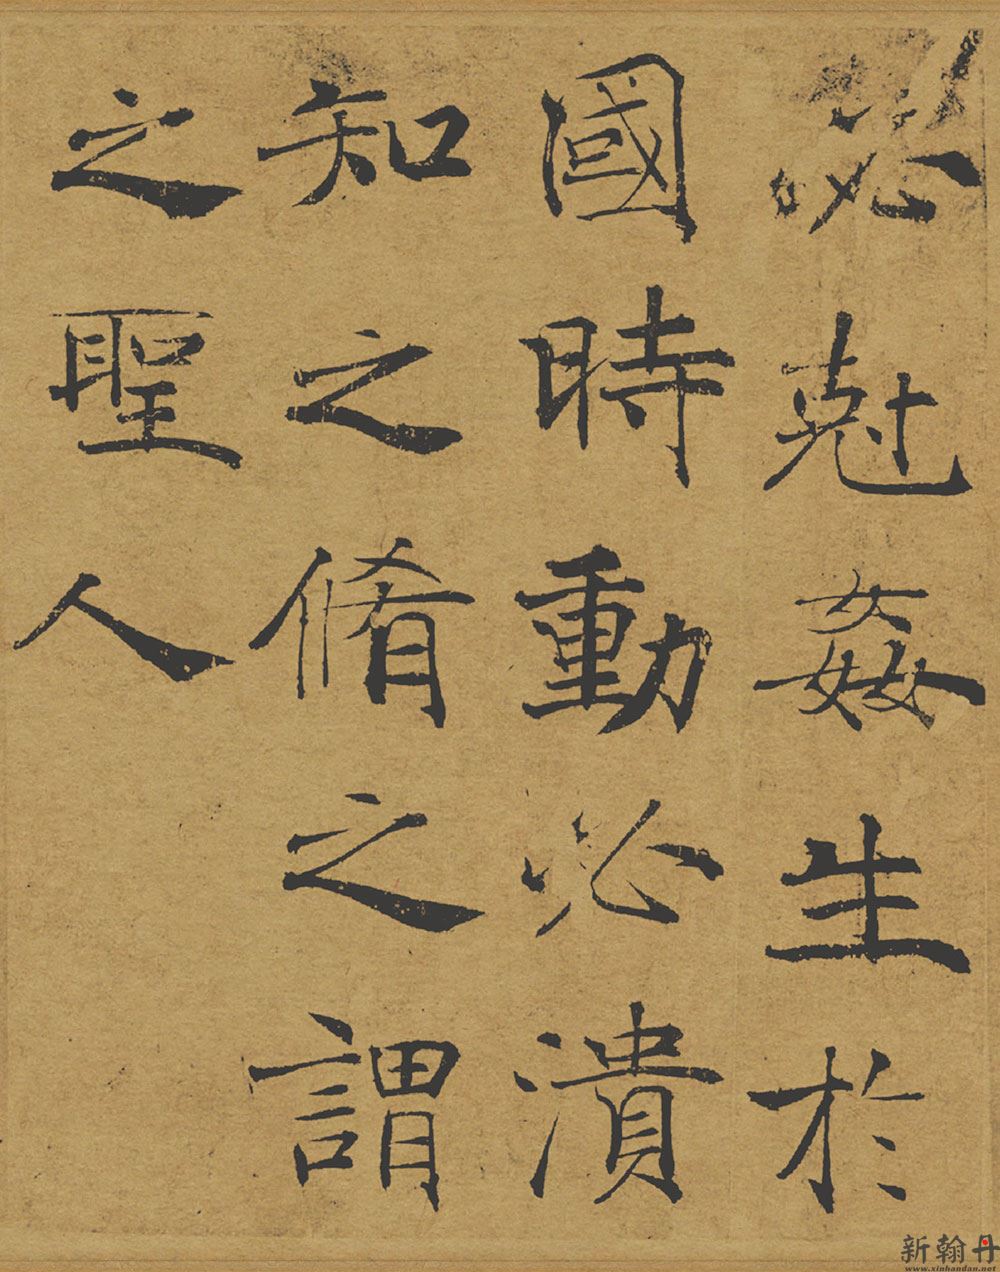 必尅姦生於
國時動必潰
知之脩之謂
之聖人
新翰丹
www.xinhandan.net